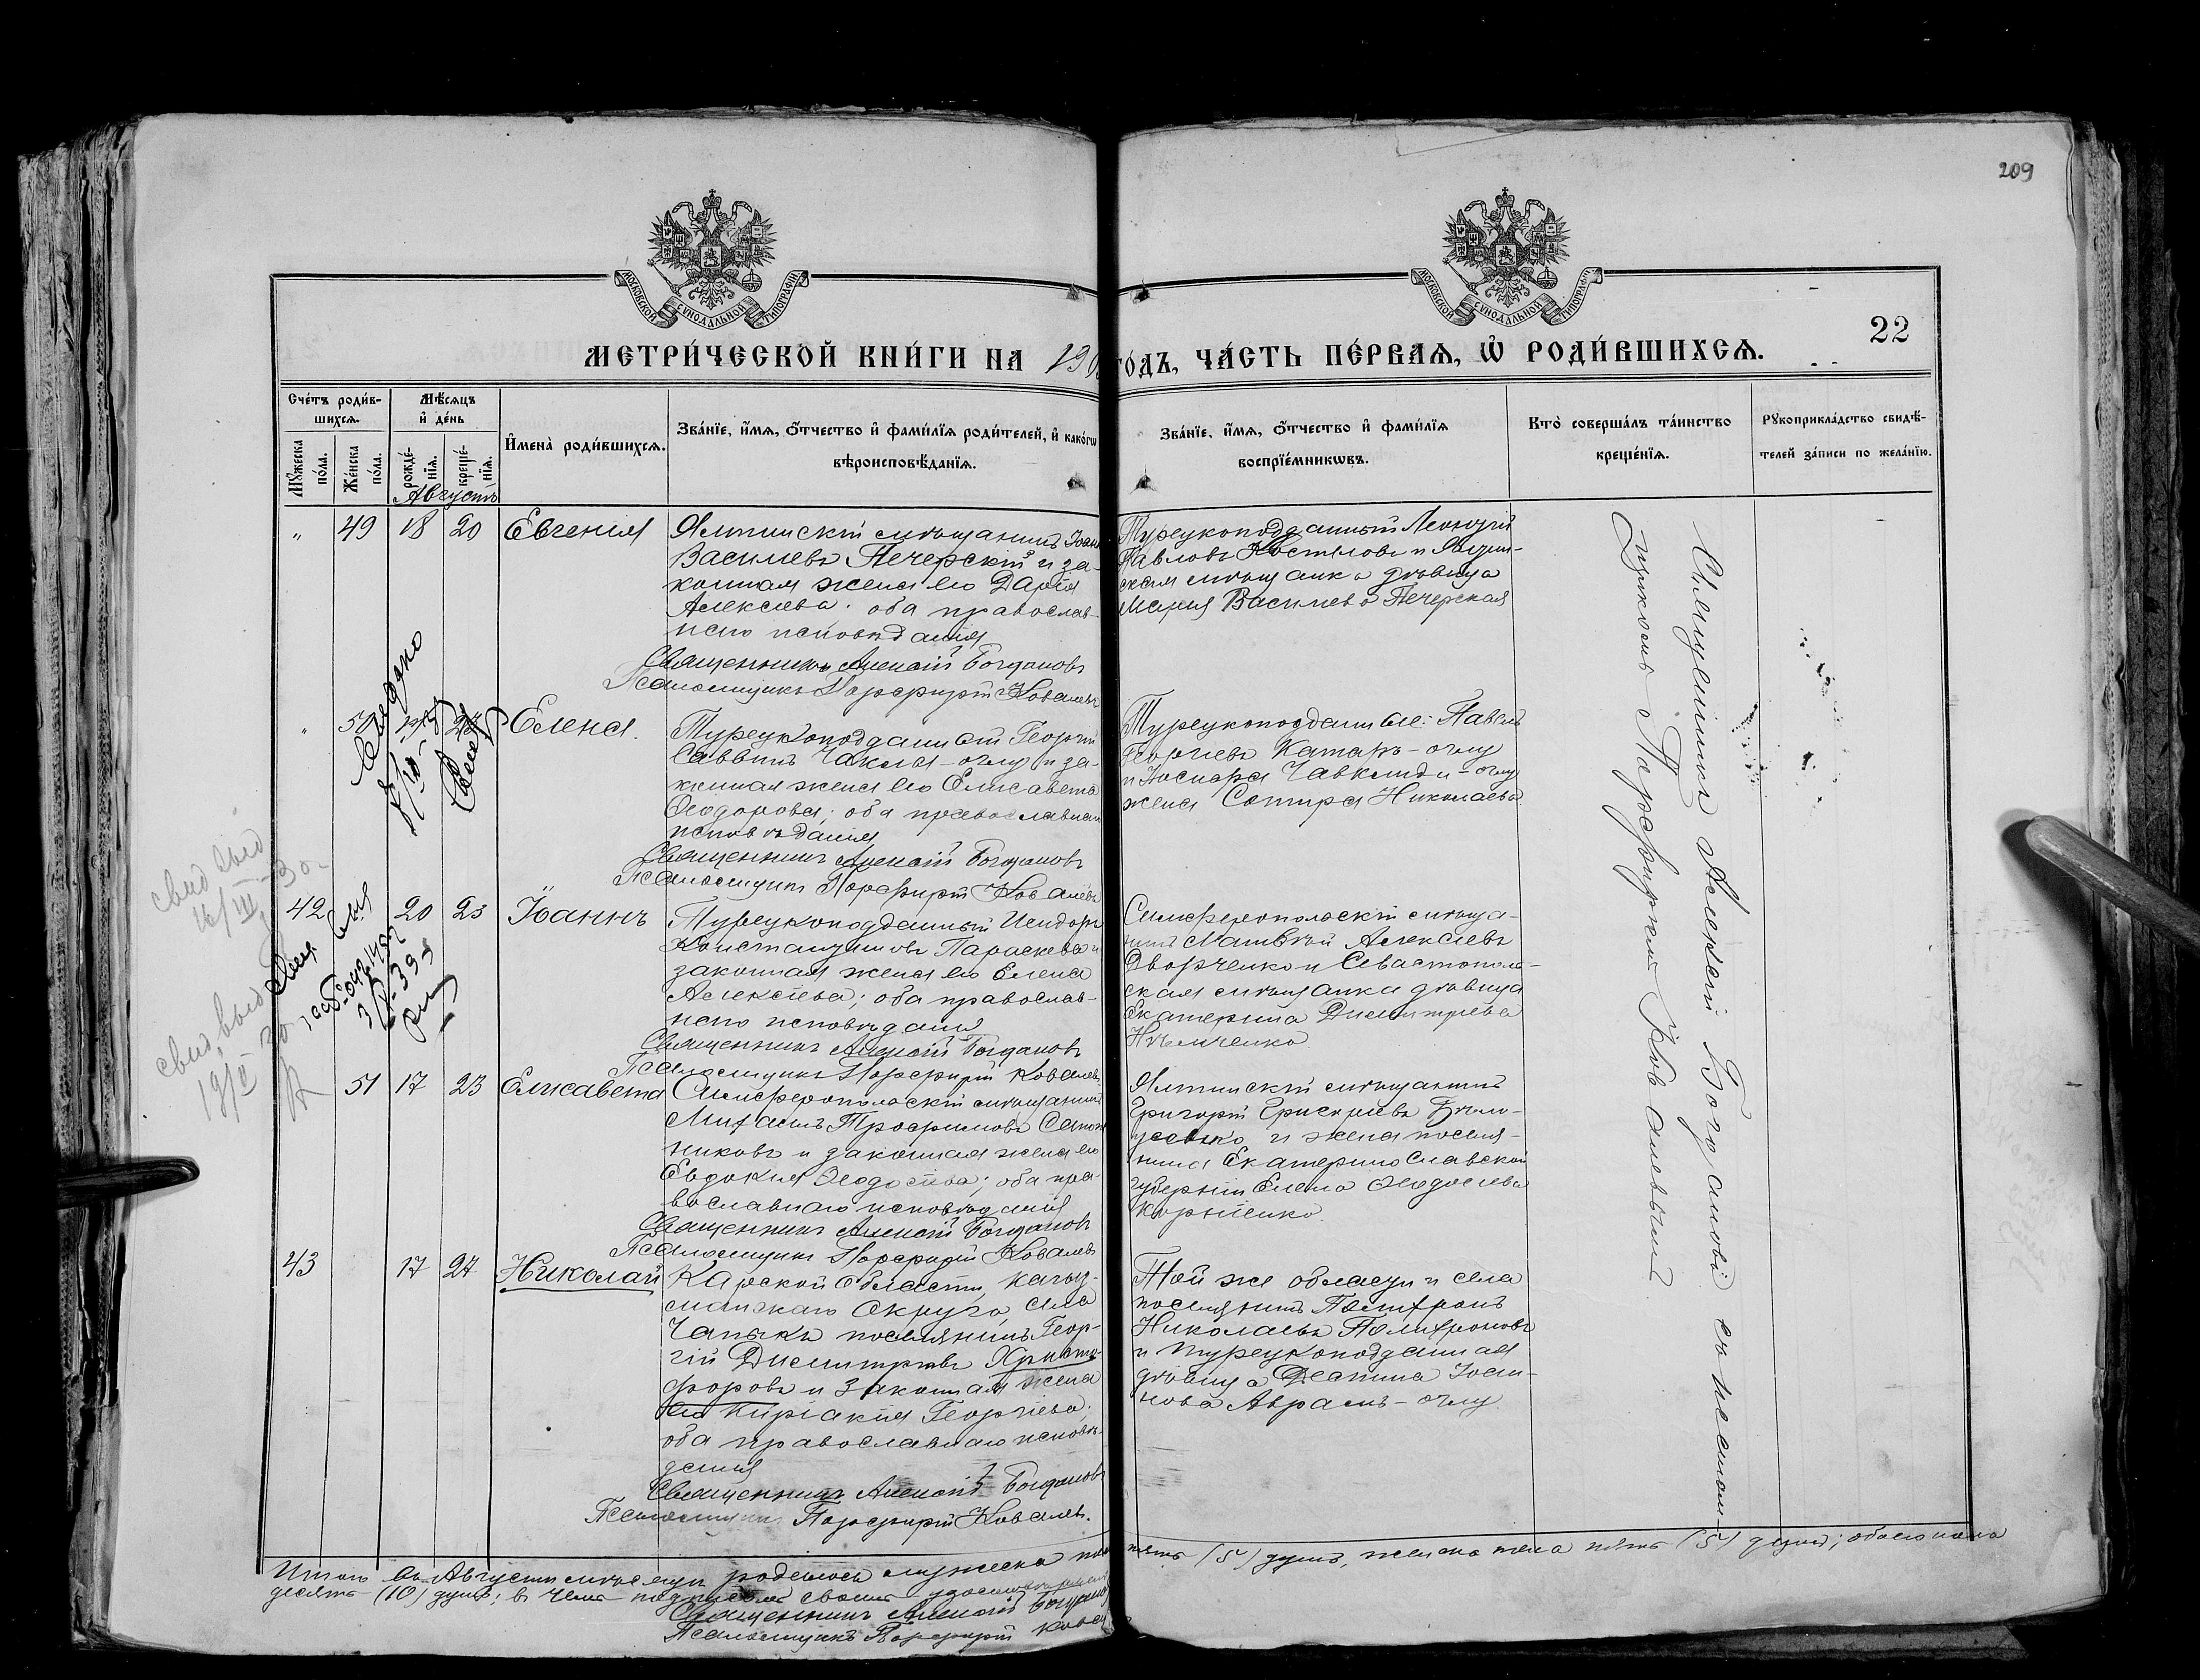 209
МОСКОВСКОЙ СѴНОДАЛЬНОЙ ТИПОГРАФІИ
МОСКОВСКОЙ СѴНОДАЛЬНОЙ ТИПОГРАФІИ
22
МЕТРИ́ЧЕСКОЙ КНИ́ГИ НА 190
ГО́ДЪ, ЧА́СТЬ ПЕ́РВАѦ, Ѡ҆ РОДИ́ВШИХСѦ.
Сче́тъ роди́в-
шихсѧ.
Мѣ́сѧцъ
и҆ де́нь
Мꙋ́жеска по́ла.
Же́нска по́ла.
рожде́-
нїѧ.
креще́-
нїѧ.
И҆мена̀ роди́вшихсѧ.
Зва́нїе, и҆́мѧ, ѻ҆́тчество и҆ фами́лїѧ роди́телей, и҆ како́гѡ
вѣроисповѣ́данїѧ.
Зва́нїе, и҆́мѧ, ѻ҆́тчество и҆ фами́лїѧ
воспрїе́мникѡвъ.
Кто̀ соверша́лъ та́инство
креще́нїѧ.
Рꙋкоприкла́дство свидѣ́-
телей за́писи по жела́нїю.
Августъ
" 49 18 20 Евгенія
Ялтинскій мѣщанинъ Іоан
Васильевъ Печерскій и за-
конная жена его Дарія
Алексѣева; оба православ-
наго исповѣданія
Священникъ Алексій Богдановъ
Псаломщикъ Порфирій Ковалевъ
Турецкоподданный Леонтій
Павловъ Костыловъ и Ялтин-
ская мѣщанка дѣвица
Марія Васильева Печерская
" 50 Елена.
Турецкоподданный Георгій
Саввинъ Чакал-оглу и за-
конная жена его Елисавета
Ѳеодорова; оба православнаго
исповѣданія
Священникъ Алексій Богдановъ
Псаломщикъ Порфирій Ковалевъ
Турецкоподданные: Павелъ
Георгіевъ Катаръ-оглу
жена Сотира Николаева
42 20 23 Іоаннъ
Турецкоподданный Исидоръ
Константиновъ Параскева и
законная жена его Елена
Алексѣева; оба православ-
наго исповѣданія
Священникъ Алексій Богдановъ
Псаломщикъ Порфирій Ковалевъ
Симферопольскій мѣща-
нинъ Матвѣй Алексѣевъ
Дворченко и Севастополь-
ская мѣщанка дѣвица
Екатерина Димитріева
Нѣмченко
51 17 23 Елисавета
Симферопольскій мѣщанинъ
Михаилъ Трофимовъ Сапож
никовъ и законная жена его
Евдокія Ѳеодосіева; оба пра-
вославнаго исповѣданія
Священникъ Алексій Богдановъ
Псаломщикъ Порфирій Ковалевъ
Ялтинскій мѣщанинъ
Григорій Григорьевъ Бѣло-
усенко и жена поселя-
нина Екатеринославской
губерніи Елена Ѳеодосіева
Корніенко.
43 17 27 Николай
Карской области, Кагыз-
манскаго округа, села
Чапыкъ поселянинъ Геор-
гій Димитріевъ Христо-
форовъ и законная жена
его Киріакія Георгіева;
оба православнаго исповѣ-
данія
Священникъ Алексій Богдановъ
Псаломщикъ Порфирій Ковалевъ.
Той же области и села
поселянинъ
Николаевъ Полихроновъ
и турецкоподданная
дѣвица Деспина
нова Аврамъ-оглу
Священникъ Алексій Богдановъ съ псалом-
щикомъ Порфиріемъ Ковалевымъ
Итого въ Августѣ мѣсяцѣ родилось мужеска пола пять (5) душъ, женска пола пять (5) душъ; обоего пола
десять (10) душъ; въ чемъ подписомъ своимъ удостовѣряемъ
Священникъ Алексій Богдановъ
Псаломщикъ Порфирій Ковалев